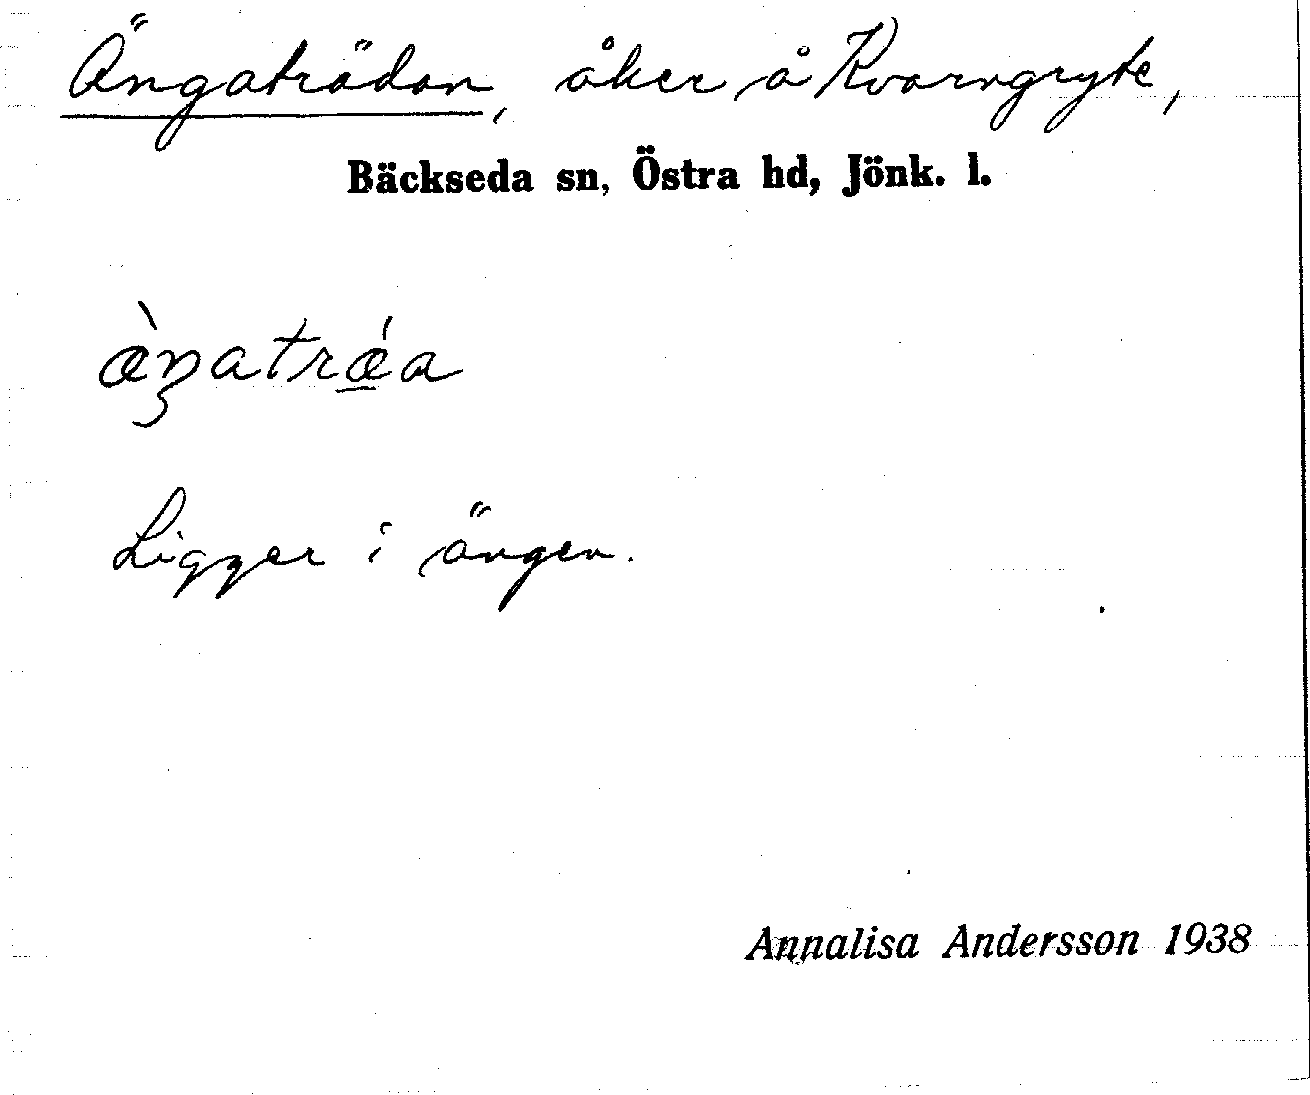 Ängaträdan, åker å Kvarngryte,
Bäckseda sn, Östra hd, Jönk. l.
æ̀ŋatrǽ̲a
Ligger i ängen.
Annalisa Andersson 1938